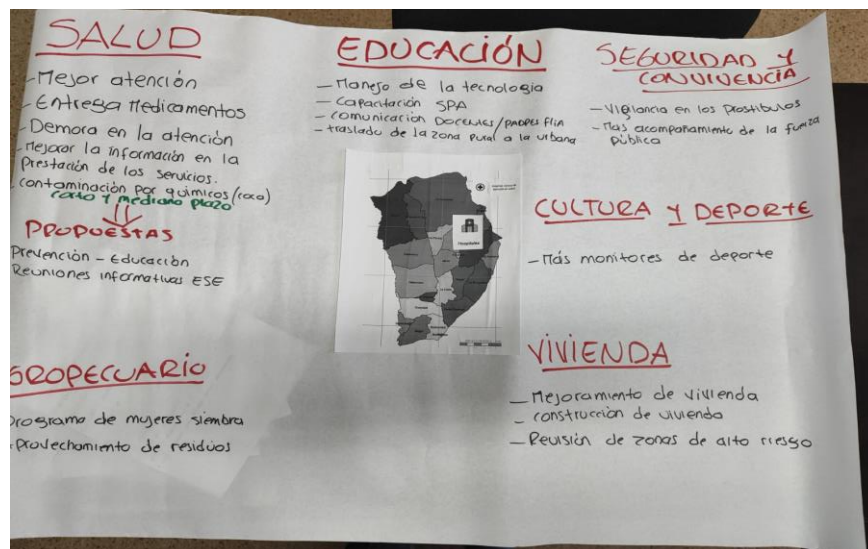 SALUD
- Mejor atención
- Entrega Medicamentos
- Demora en la atención
- Mejorar la información en la
Prestación de los servicios.
- contaminación por químicos (coca)
corto y mediano plazo
PROPUESTAS
Prevención - Educación
Reuniones informativas ESE
GROPECUARIO
Programa de mujeres siembra
Aprovechamiento de residuos
EDUCACIÓN
- Manejo de la tecnologia
- Capacitación SPA
- comunicación Docentes/padres flia
- traslado de la zona rural a la urbana
Hospitales
SEGURIDAD Y
CONVIVENCIA
- Vigilancia en los Prostibulos
- Más acompañamiento de la fuerza
Pública
CULTURA Y DEPORTE
- Más monitores de deporte
VIVIENDA
- Mejoramiento de vivienda
- construcción de vivienda
- Revisión de zonas de alto riesgo